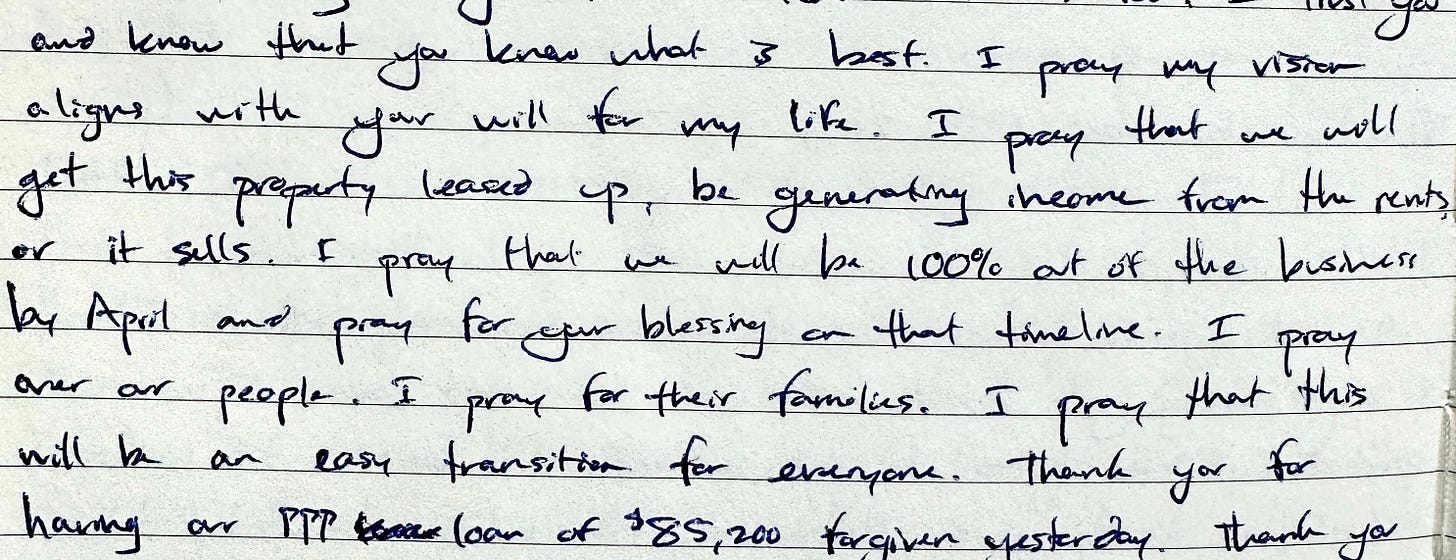 I trust you
and know that you know what is best. I pray my vision
aligns with your will for my life. I pray that we will
get this property leased up, be generating income from the rents,
or it sells. I pray that we will be 100% out of the business
by April and pray for your blessing on that timeline. I pray
over our people. I pray for their families. I pray that this
will be an easy transition for everyone. Thank you for
having our PPP loan of $85,200 forgiven yesterday. Thank you